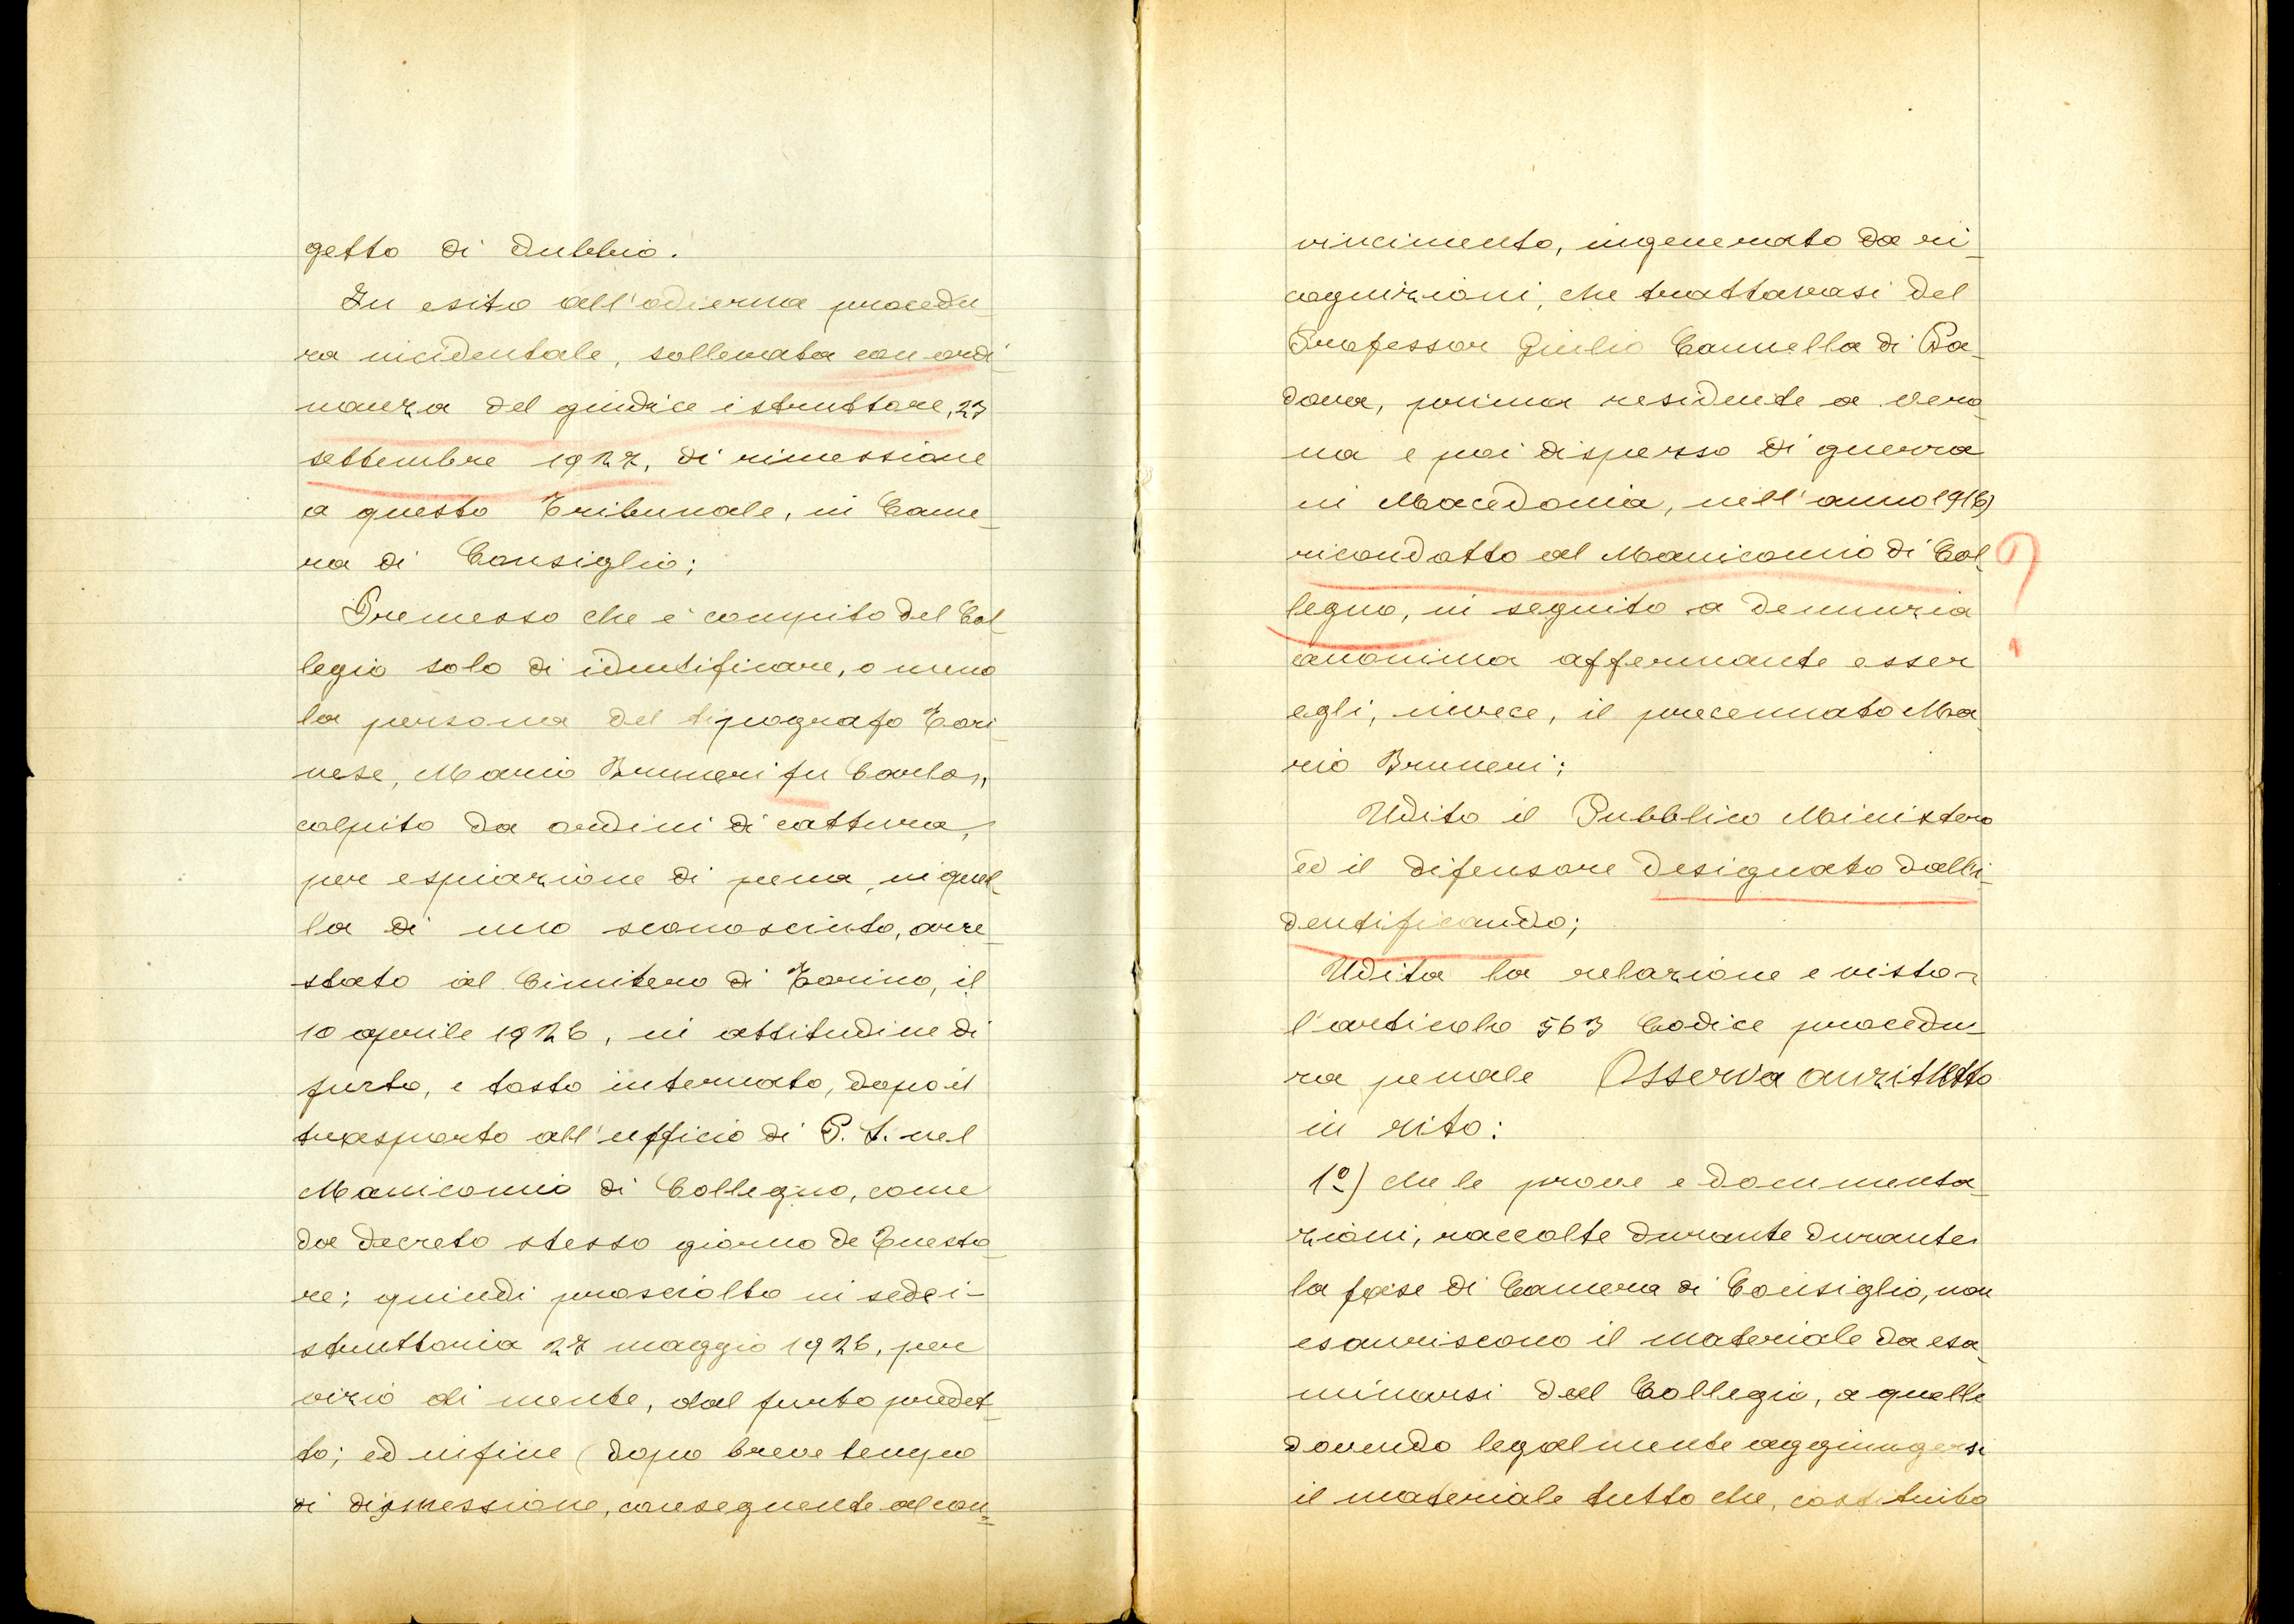 getto di dubbio.
In esito all'odierna procedu-
ra incidentale, sollevata con ordi-
nanza del giudice istruttore, 23
settembre 1927, di rimessione
a questo Tribunale, in Came-
ra di Consiglio;
Premesso che è compito del Col-
legio solo di identificare, o meno
la persona del tipografo Tori-
nese, Mario Bruneri fu Carlo,
colpito da ordini di cattura,
per espiazione di pena, in quel-
la di uno sconosciuto, arre-
stato al Cimitero di Torino, il
10 aprile 1926, in attitudine di
furto, e tosto internato, dopo il
trasporto all'ufficio di P. S. nel
Manicomio di Collegno, come
da decreto stesso giorno de Questo-
re; quindi prosciolto in sede i-
struttoria 27 maggio 1926, per
vizio di mente, dal furto predet-
to; ed infine (dopo breve tempo
di dismessione, conseguente al con=
vincimento, ingenerato da ri-
cognizioni, che trattavasi del
Professor Giulio Cannella di Pa-
dova, prima residente a Vero-
na e poi disperso di guerra
in Macedonia, nell'anno 1916)
ricondotto al Manicomio di Col-
legno, in seguito a denunzia
?
anonima affermante esser
egli, invece, il precennato Ma-
rio Bruneri;
Udito il Pubblico Ministero
ed il difensore designato dall'i-
dentificando;
Udita la relazione e visto
l'articolo 563 Codice procedu-
ra penale Osserva anzitutto
in rito:
1º) che le prove e documenta-
zioni, raccolte durante durante
la fase di Camera di Consiglio, non
esauriscono il materiale da esa-
minarsi dal Collegio, a quelle
dovendo legalmente aggiungersi
il materiale tutto che, costituito